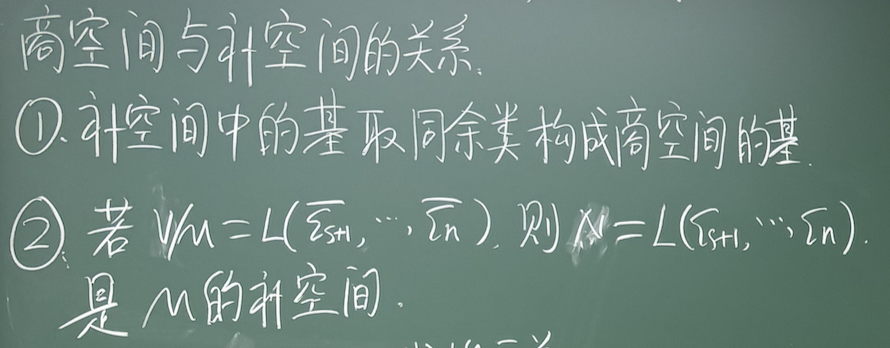 商空间与补空间的关系.
①. 补空间中的基取同余类构成商空间的基.
②. 若 V/M = L(ε̅ₛ₊₁, ⋯, ε̅ₙ). 则 N = L(εₛ₊₁, ⋯, εₙ).
是 M 的补空间.